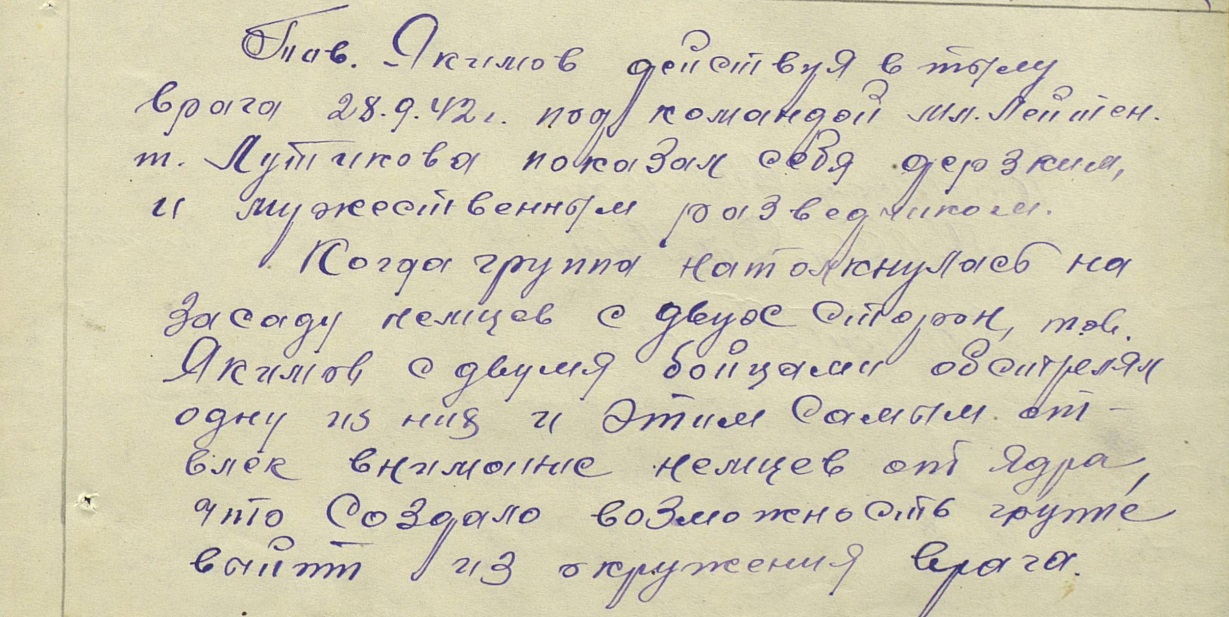 Тов. Якимов действуя в тылу
врага 28.9.42г. под командой мл. Лейтен.
т. Лутикова показал себя дерзким,
и мужественным разведчиком.
Когда группа натолкнулась на
засаду немцев с двух сторон, тов.
Якимов с двумя бойцами обстрелял
одну из них и этим самым от-
влек внимание немцев от ядра,
что создало возможность группе
выйти из окружения врага.